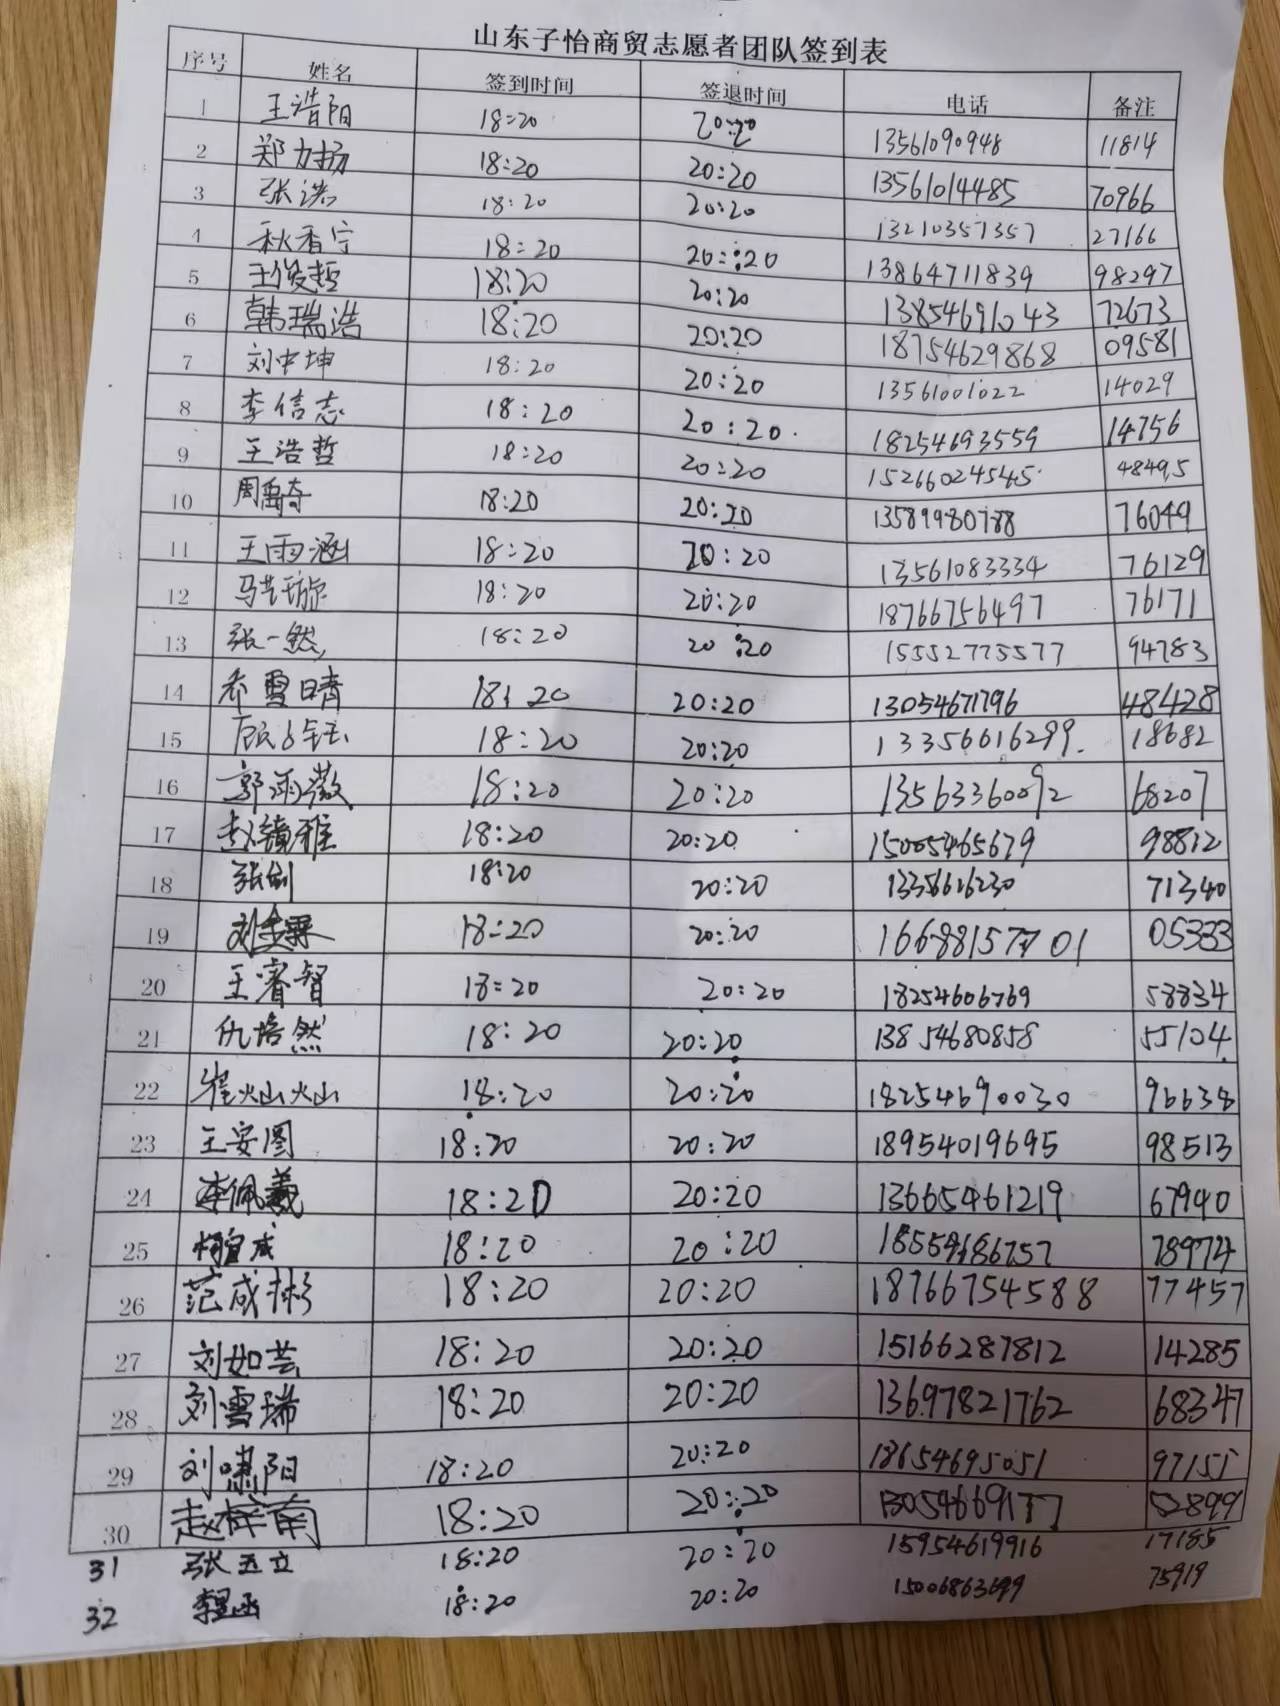 山东子怡商贸志愿者团队签到表
序号 姓名 签到时间 签退时间 电话 备注
1 王浩阳 18:20 20:20 13561090948 11814
2 郑力扬 18:20 20:20 13561014485 70966
3 张浩 18:20 20:20 13210357357 27166
4 秋香宁 18:20 20:20 13864711839 98297
5 王俊哲 18:20 20:20 13854691043 72673
6 韩瑞浩 18:20 20:20 18754629868 09581
7 刘中坤 18:20 20:20 13561001022 14029
8 李信志 18:20 20:20 18254693559 14756
9 王浩哲 18:20 20:20 15266024545 48495
10 周禹奇 18:20 20:20 13589980788 76049
11 王雨涵 18:20 20:20 13561083334 76129
12 马艺璇 18:20 20:20 18766756497 76171
13 张一然 18:20 20:20 15552775577 94783
14 希雪晴 18:20 20:20 13054671796 48428
15 18:20 20:20 13356616299 18682
16 郭雨薇 18:20 20:20 13563360092 68207
17 赵镜雅 18:20 20:20 15005465679 98812
18 张剑 18:20 20:20 13356616230 71340
19 18:20 20:20 16688157701 05333
20 王睿智 18:20 20:20 18254606769 58834
21 仇培然 18:20 20:20 13854680858 55104
22 崔火山火山 18:20 20:20 18254690030 96638
23 王安图 18:20 20:20 18954019695 98513
24 李佩羲 18:20 20:20 13665461219 67940
25 18:20 20:20 18554686757 78974
26 范成彬 18:20 20:20 18766754588 77457
27 刘如芸 18:20 20:20 15166287812 14285
28 刘雪瑞 18:20 20:20 13697821762 68347
29 刘啸阳 18:20 20:20 18654695051 97155
30 赵梓南 18:20 20:20 13054669177 52899
31 张五立 18:20 20:20 15954619916 17185
32 18:20 20:20 15006863699 75919